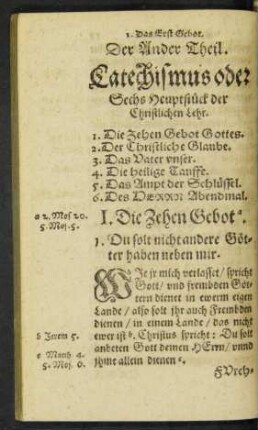 1. Das Erst Gebot.
Der Ander Theil.
Catechismus oder
Sechs Heuptstück der
Christlichen Lehr.
1. Die Zehen Gebot Gottes.
2. Der Christliche Glaube.
3. Das Vater vnser.
4. Die heilige Tauffe.
5. Das Ampt der Schlüssel.
6. Des HERRN Abendmal.
a 2. Mos 20.
5. Mos. 5.
I. Die Zehen Gebot a.
1. Du solt nicht andere Göt-
ter haben neben mir.
WIe jr mich verlasset / spricht
Gott / vnd frembden Göt-
tern dienet in ewerm eigen
Lande / also solt jhr auch Frembden
dienen / in einem Lande / das nicht
b Jerem 5.
ewer ist b. Christus spricht: Du solt
c Matth 4.
anbeten Gott deinen HErrn / vnnd
5. Mos. 6.
jhme allein dienen c.
FVrch-